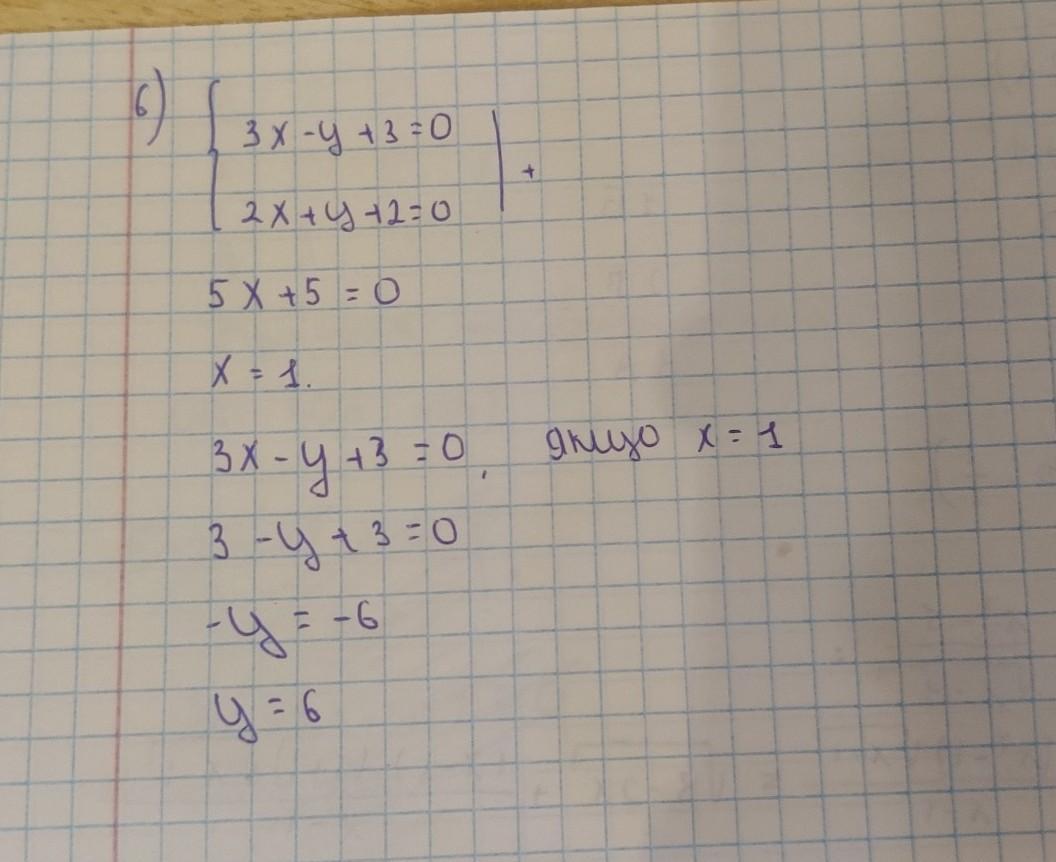 6) { 3x - y + 3 = 0 | +
2x + y + 2 = 0
5x + 5 = 0
x = 1.
3x - y + 3 = 0, якщо x = 1
3 - y + 3 = 0
-y = -6
y = 6